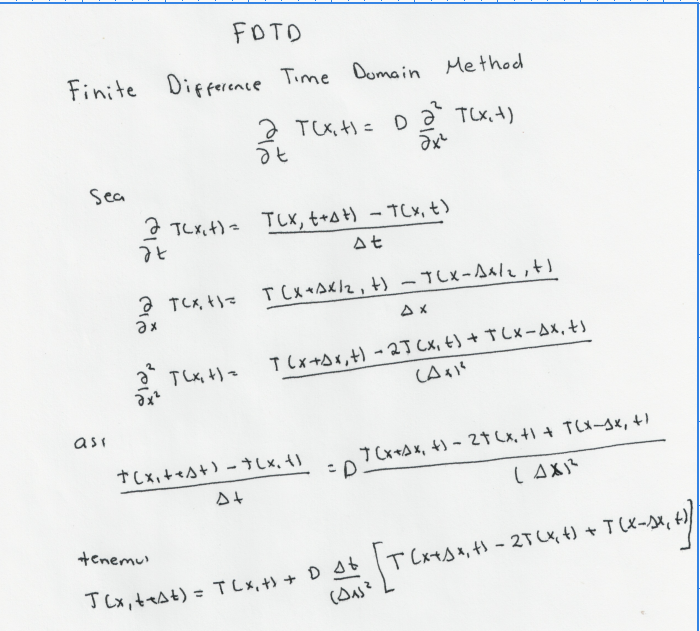 FDTD
Finite Difference Time Domain Method
∂/∂t T(x,t) = D ∂²/∂x² T(x,t)
Sea
∂/∂t T(x,t) = (T(x, t+Δt) - T(x,t)) / Δt
∂/∂x T(x,t) = (T(x+Δx/2, t) - T(x-Δx/2, t)) / Δx
∂²/∂x² T(x,t) = (T(x+Δx,t) - 2T(x,t) + T(x-Δx,t)) / (Δx)²
así
(T(x,t+Δt) - T(x,t)) / Δt = D (T(x+Δx,t) - 2T(x,t) + T(x-Δx,t)) / (Δx)²
tenemos
T(x,t+Δt) = T(x,t) + D Δt/(Δx)² [T(x+Δx,t) - 2T(x,t) + T(x-Δx,t)]